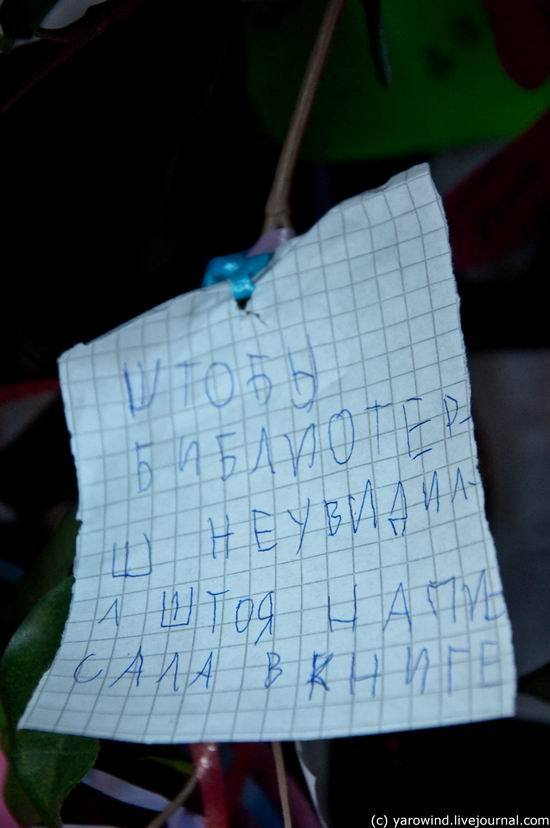 ШТОБЫ
БИБЛИОТЕР-
Ш НЕУВИДИЛ-
Л ШТОЯ НАПИ-
САЛА В КНИГЕ
(c) yarowind.livejournal.com